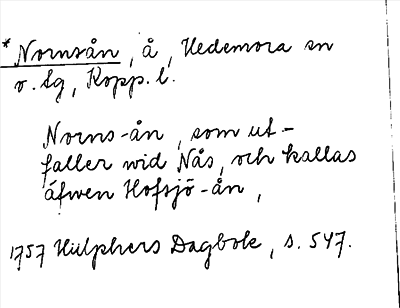 * Nornsån, å, Hedemora sn
o. tg, Kopp. l.
Norns-ån, som ut-
faller wid Nås, och kallas
äfwen Hofsjö-ån,
1757 Hülphers Dagbok, s. 547.